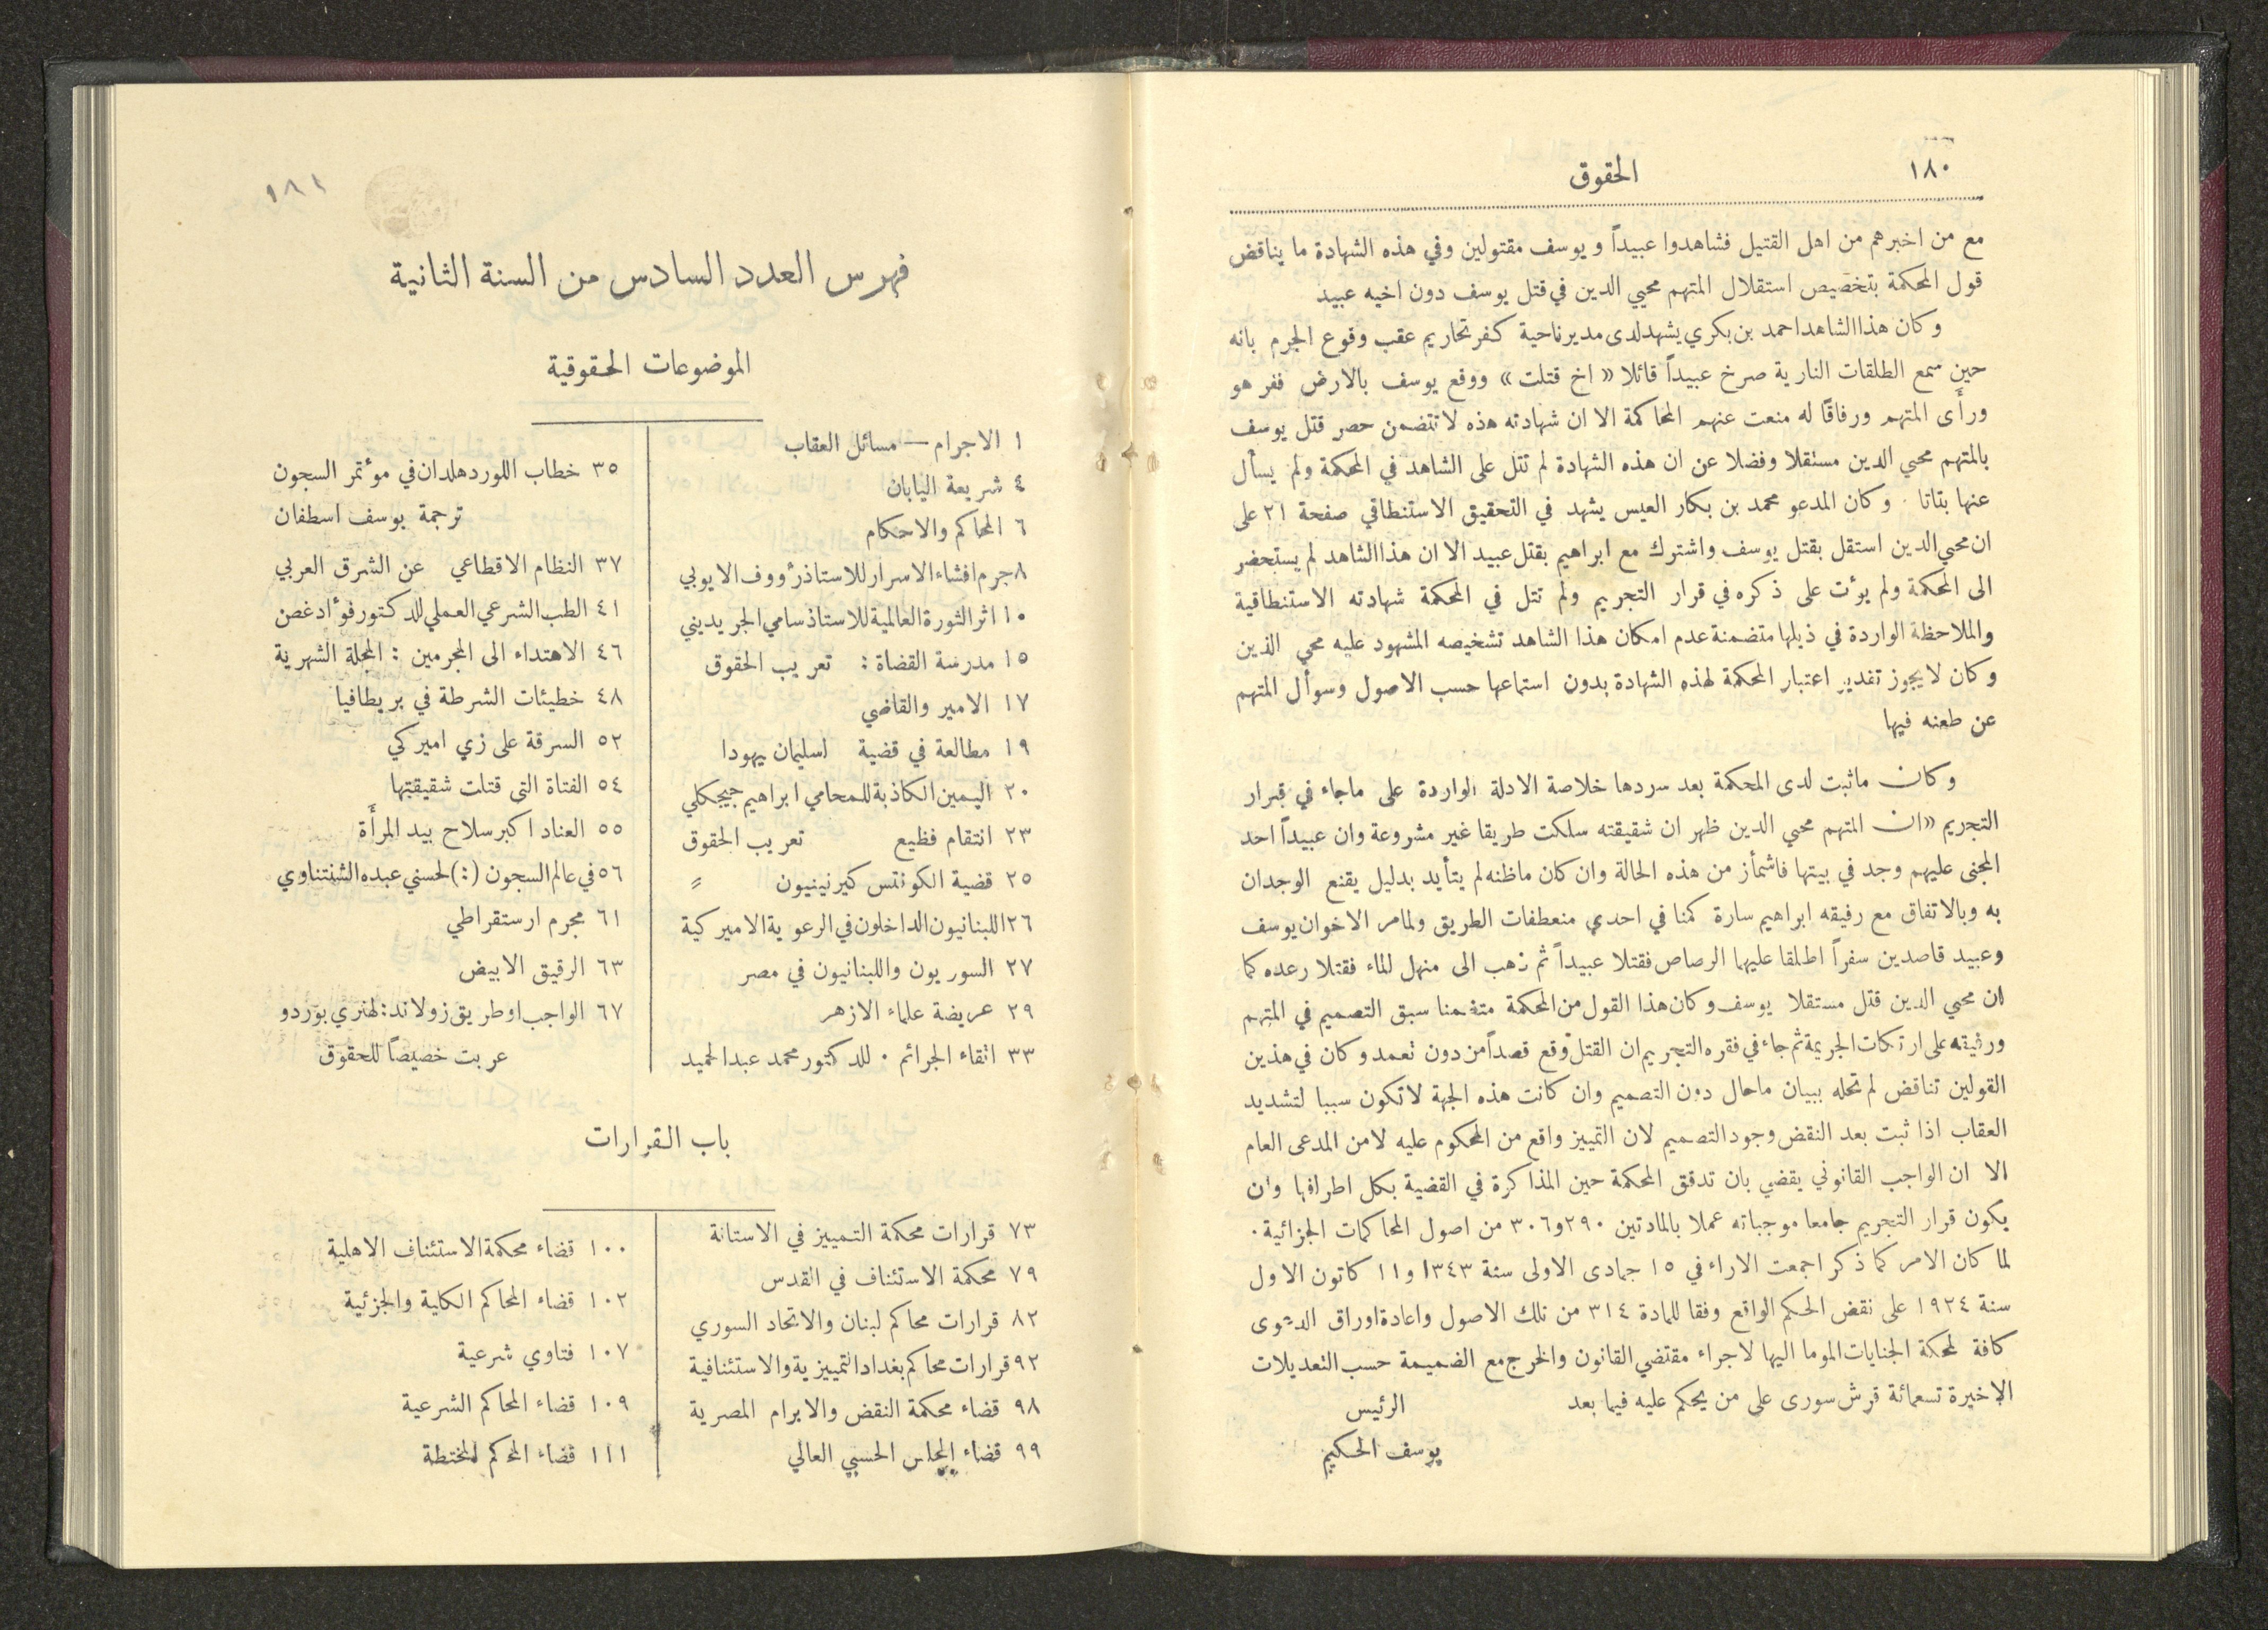 ١٨٠
الحقوق
مع من اخبرهم من اهل القتيل فشاهدوا عبيداً ويوسف مقتولين وفي هذه الشهادة ما يناقض
قول المحكمة بتخصيص استقلال المتهم محيي الدين في قتل يوسف دون اخيه عبيد
وكان هذا الشاهد احمد بن بكري يشهد لدى مدير ناحية كفر تخاريم عقب وقوع الجرم بانه
حين سمع الطلقات النارية صرخ عبيداً قائلا « اخ قتلت » ووقع يوسف بالارض ففر هو
ورأَى المتهم ورفاقًا له منعت عنهم المحاكمة الا ان شهادته هذه لا تتضمن حصر قتل يوسف
بالمتهم محيي الدين مستقلا وفضلا عن ان هذه الشهادة لم تتل على الشاهد في المحكمة ولم يسأل
عنها بتاتا . وكان المدعو محمد بن بكار العيس يشهد في التحقيق الاستنطاقي صفحة ٢١ على
ان محيي الدين استقل بقتل يوسف واشترك مع ابراهيم بقتل عبيد الا ان هذا الشاهد لم يستحضر
الى المحكمة ولم يؤت على ذكره في قرار التجريم ولم تتل في المحكمة شهادته الاستنطاقية
والملاحظة الواردة في ذيلها متضمنة عدم امكان هذا الشاهد تشخيصه المشهود عليه محي الدين
وكان لا يجوز تقدير اعتبار المحكمة لهذه الشهادة بدون استماعها حسب الاصول وسوأل المتهم
عن طعنه فيها
وكان ماثبت لدى المحكمة بعد سردها خلاصة الادلة الواردة على ماجاء في قرار
التجريم « ان المتهم محيي الدين ظهر ان شقيقته سلكت طريقا غير مشروعة وان عبيداً احد
المجنى عليهم وجد في بيتها فاشمأز من هذه الحالة وان كان ماظنه لم يتأيد بدليل يقنع الوجدان
به وبالاتفاق مع رفيقه ابراهيم سارة كمنا في احدي منعطفات الطريق ولما مر الاخوان يوسف
وعبيد قاصدين سفراً اطلقا عليهما الرصاص فقتلا عبيداً ثم ذهب الى منهل الماء فقتلا رعده كما
ان محيي الدين قتل مستقلا يوسف وكان هذا القول من المحكمة متضمنا سبق التصميم في المتهم
ورفيقه على ارتكاب الجريمة ثم جاء في فقره التجريم ان القتل وقع قصداً من دون تعمد وكان في هذين
القولين تناقض لم تحله ببيان ماحال دون التصميم وان كانت هذه الجهة لا تكون سببا لتشديد
العقاب اذا ثبت بعد النقض وجود التصميم لان التمييز واقع من المحكوم عليه لا من المدعى العام
الا ان الواجب القانوني يقضي بان تدقق المحكمة حين المذاكرة في القضية بكل اطرافها وان
يكون قرار التجريم جامعا موجباته عملا بالمادتين ٢٩٠ و٣٠٦ من اصول المحاكمات الجزائية .
لما كان الامر كما ذكر اجمعت الاراء في ١٥ جمادى الاولى سنة ١٣٤٣ و١١ كانون الاول
سنة ١٩٢٤ على نقض الحكم الواقع وفقا للمادة ٣١٤ من تلك الاصول واعادة اوراق الدعوى
كافة لمحكمة الجنايات الموما اليها لاجراء مقتضي القانون والخرج مع الضميمة حسب التعديلات
الاخيرة تسعمائة قرش سورى على من يحكم عليه فيما بعد
الرئيس
يوسف الحكيم
١٨١
فهرس العدد السادس من السنة الثانية
الموضوعات الحقوقية
١ الاجرام — مسائل العقاب
٤ شريعة اليابان
٦ المحاكم والاحكام
٨ جرم افشاء الاسرار للاستاذ رؤوف الايوبي
١٠ اثر الثورة العالمية للاستاذ سامي الجريديني
١٥ مدرسة القضاة : تعريب الحقوق
١٧ الامير والقاضي
١٩ مطالعة في قضية اسليمان يهودا
٢٠ اليمين الكاذبة للمحامي ابراهيم جيجكلي
٢٣ انتقام فظيع تعريب الحقوق
٢٥ قضية الكونتس كيرنينيون =
٢٦ اللبنانيون الداخلون في الرعوية الاميركية
٢٧ السوريون واللبنانيون في مصر
٢٩ عريضة علماء الازهر
٣٣ اتقاء الجرائم . للدكتور محمد عبد الحميد
٣٥ خطاب اللورد هلدان في مؤتمر السجون
ترجمة يوسف اسطفان
٣٧ النظام الاقطاعي عن الشرق العربي
٤١ الطب الشرعي العملي للدكتور فؤاد غصن
٤٦ الاهتداء الى المجرمين : المجلة الشهرية
٤٨ خطيئات الشرطة في بريطافيا
٥٢ السرقة على زي اميركي
٥٤ الفتاة التى قتلت شقيقتها
٥٥ العناد اكبر سلاح بيد المرأَة
٥٦ في عالم السجون (:) لحسني عبده الشنتناوي
٦١ مجرم ارستقراطي
٦٣ الرقيق الابيض
٦٧ الواجب او طريق زولاند : لهنري بوردو
عربت خصيصاً للحقوق
باب القرارات
٧٣ قرارات محكمة التمييز في الاستانة
٧٩ محكمة الاستئناف في القدس
٨٢ قرارات محاكم لبنان والاتحاد السوري
٩٢ قرارات محاكم بغداد التمييزية والاستئنافية
٩٨ قضاء محكمة النقض والابرام المصرية
٩٩ قضاء المجلس الحسبي العالي
١٠٠ قضاء محكمة الاستئناف الاهلية
١٠٢ قضاء المحاكم الكلية والجزئية
١٠٧ فتاوي شرعية
١٠٩ قضاء المحاكم الشرعية
١١١ قضاء المحاكم المختطة